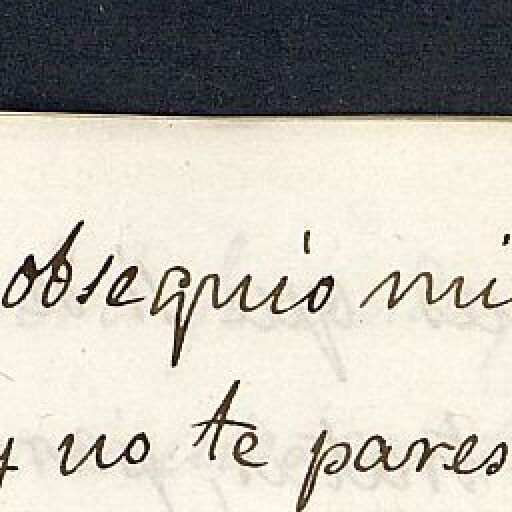 obsequio mi
y no te pares